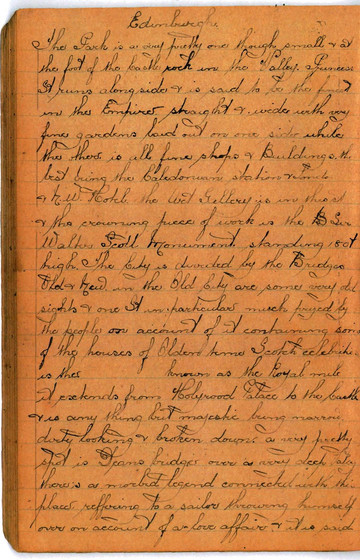 Edinburgh
The Park is a very pretty one though small & at
the foot of the castle rock in the Valley. Princess
St runs alongside & is said to be the finest
in the Empire straight & wide with very
fine gardens laid out on one side while
the other is all fine shops & Buildings. the
best being the Caledonian station &
& N.W. Hotel the Art Gallery is in this st
& the crowning piece of work is the Sir
Walter Scott Monument standing
high. The City is divided by the Bridges
Old & New in the Old City are some very old
sights & one St in particular much prized by
the people on account of it containing some
of the houses of Olden time Scotch celebrities
is the known as the Royal mile
it extends from Holyrood Palace to the Castle
& is any thing but majestic being narrow
dirty looking & broken down. a very pretty
spot is Deans bridge over a very deep
there is a morbid legend connected with this
place reffering to a sailor throwing himself
over on account of a love affair & it is said